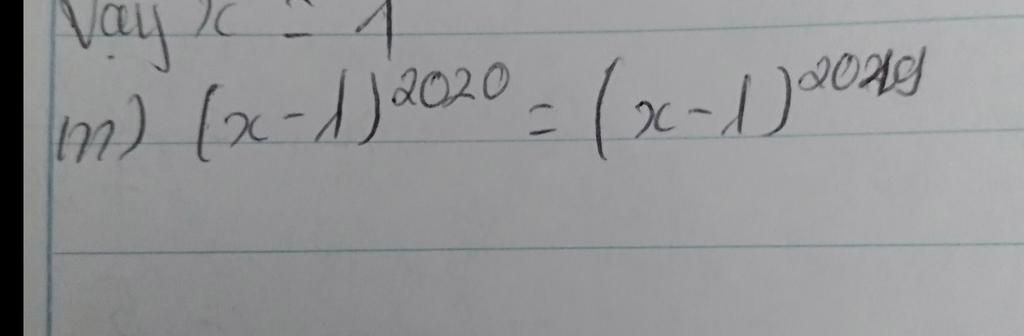 Vậy x = 1
m) (x-1)^2020 = (x-1)^2019